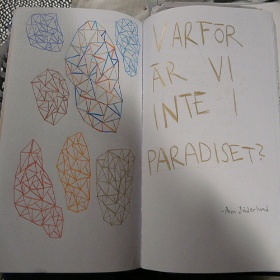 VARFÖR
ÄR VI
INTE I
PARADISET?
- Ann Jäderlund